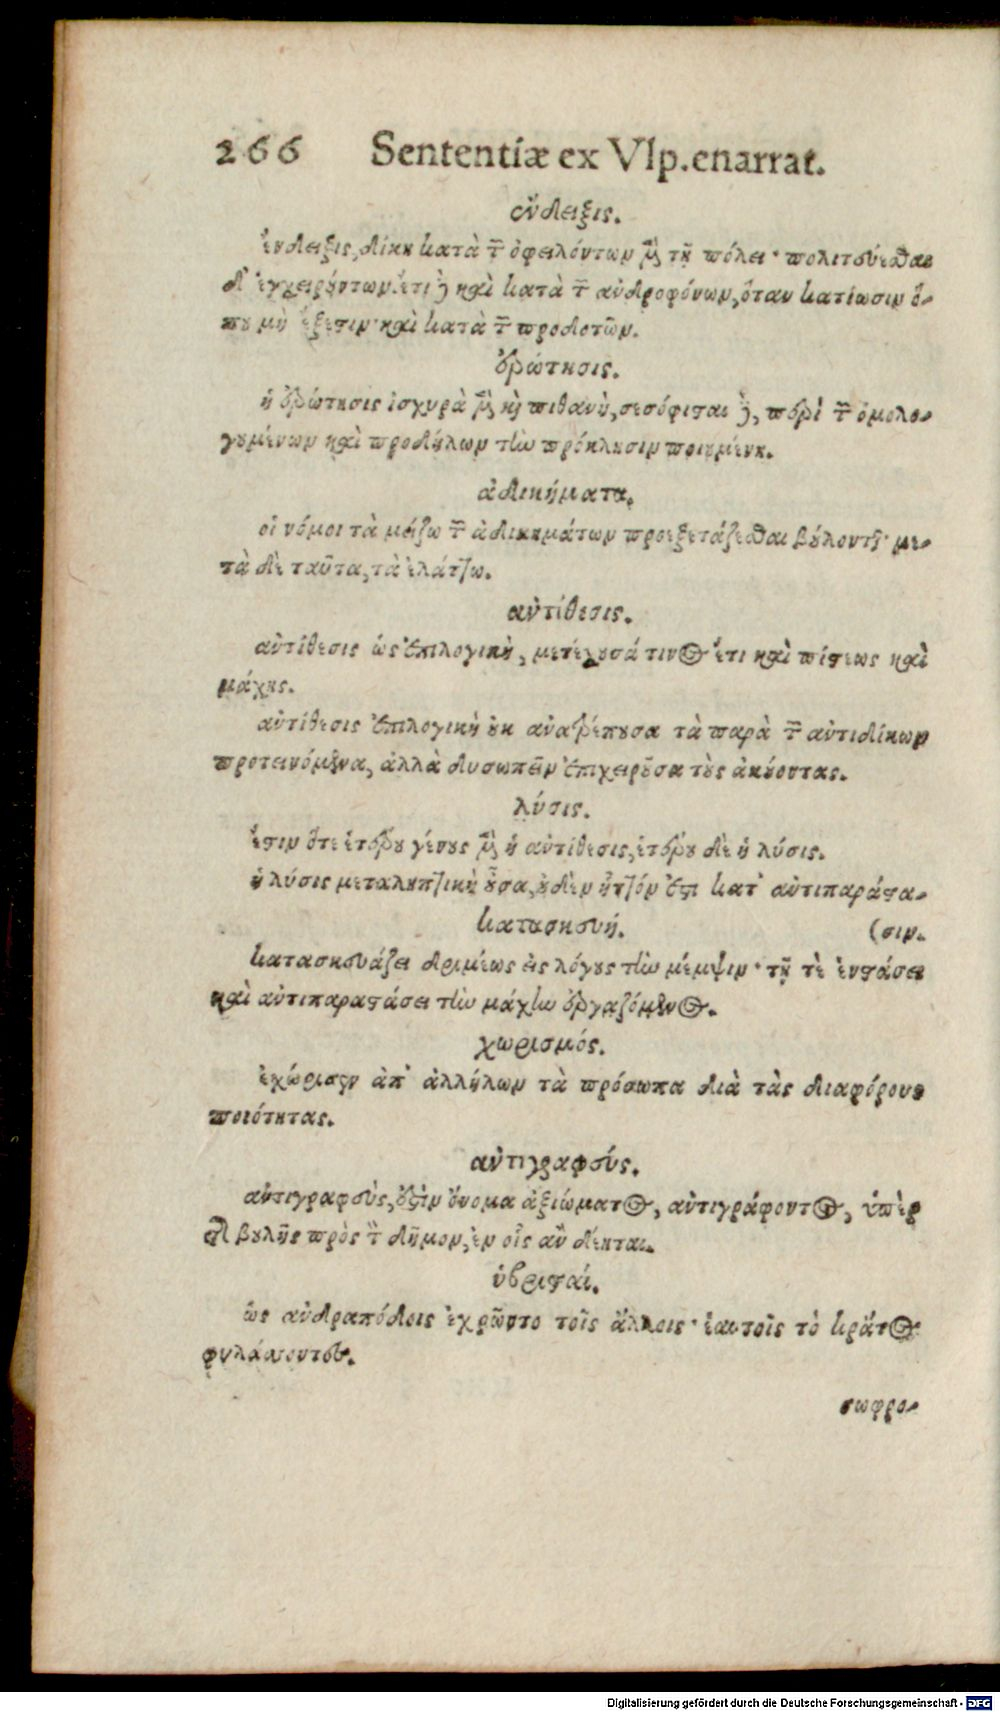 266 Sententiæ ex Vlp. enarrat.
ἔνδειξις.
ἔνδειξις, δίκη κατὰ τῶν ὀφειλόντων μὲν τῇ πόλει· πολιτεύεσθαι
δ' ἐγχειρούντων. ἔτι δὲ καὶ κατὰ τῶν ἀνδροφόνων, ὅταν κατίωσιν ὅ-
που μὴ ἔξεστιν· καὶ κατὰ τῶν προδοτῶν.
ἐρώτησις.
ἡ ἐρώτησις ἰσχυρὰ μὲν καὶ πιθανὴ, σεσόφισται δὲ, περὶ τῶν ὁμολο-
γουμένων καὶ προδήλων τὴν πρόκλησιν ποιουμένη.
ἀδικήματα.
οἱ νόμοι τὰ μείζω τῶν ἀδικημάτων προεξετάζεσθαι βούλονται· με-
τὰ δὲ ταῦτα, τὰ ἐλάττω.
ἀντίθεσις.
ἀντίθεσις ὡς ἐπιλογικὴ, μετέχουσά τινος ἔτι καὶ πίστεως καὶ
μάχης.
ἀντίθεσις ἐπιλογικὴ οὐκ ἀνατρέπουσα τὰ παρὰ τῶν ἀντιδίκων
προτεινόμενα, ἀλλὰ δυσωπεῖν ἐπιχειροῦσα τοὺς ἀκούοντας.
λύσις.
ἔστιν ὅτε ἑτέρου γένους μὲν ἡ ἀντίθεσις, ἑτέρου δὲ ἡ λύσις.
ἡ λύσις μεταληπτικὴ οὖσα, οὐδὲν ἧττόν ἐστι κατ' ἀντιπαράστα-
κατασκευή. (σιν.
κατασκευάζει δριμέως εἰς λόγους τὴν μέμψιν· τῇ τὲ ἐνστάσει
καὶ ἀντιπαραστάσει τὴν μάχην ἐργαζόμενος.
χωρισμός.
ἐχώρισεν ἀπ' ἀλλήλων τὰ πρόσωπα διὰ τὰς διαφόρους
ποιότητας.
ἀντιγραφεύς.
ἀντιγραφεὺς, ἐστὶν ὄνομα ἀξιώματος, ἀντιγράφοντος, ὑπὲρ
τῆς βουλῆς πρὸς τὸν δῆμον, ἐν οἷς ἂν δέηται.
ὑβρισταί.
ὡς ἀνδραπόδοις ἐχρῶντο τοῖς ἄλλοις· ἑαυτοῖς τὸ κράτος
φυλάττοντες.
σωφρο-
Digitalisierung gefördert durch die Deutsche Forschungsgemeinschaft - DFG